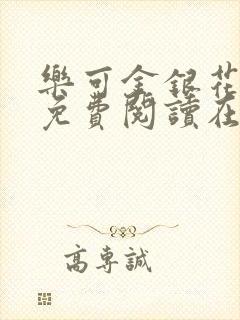 樂可金銀花
免費閱讀在
高專誠